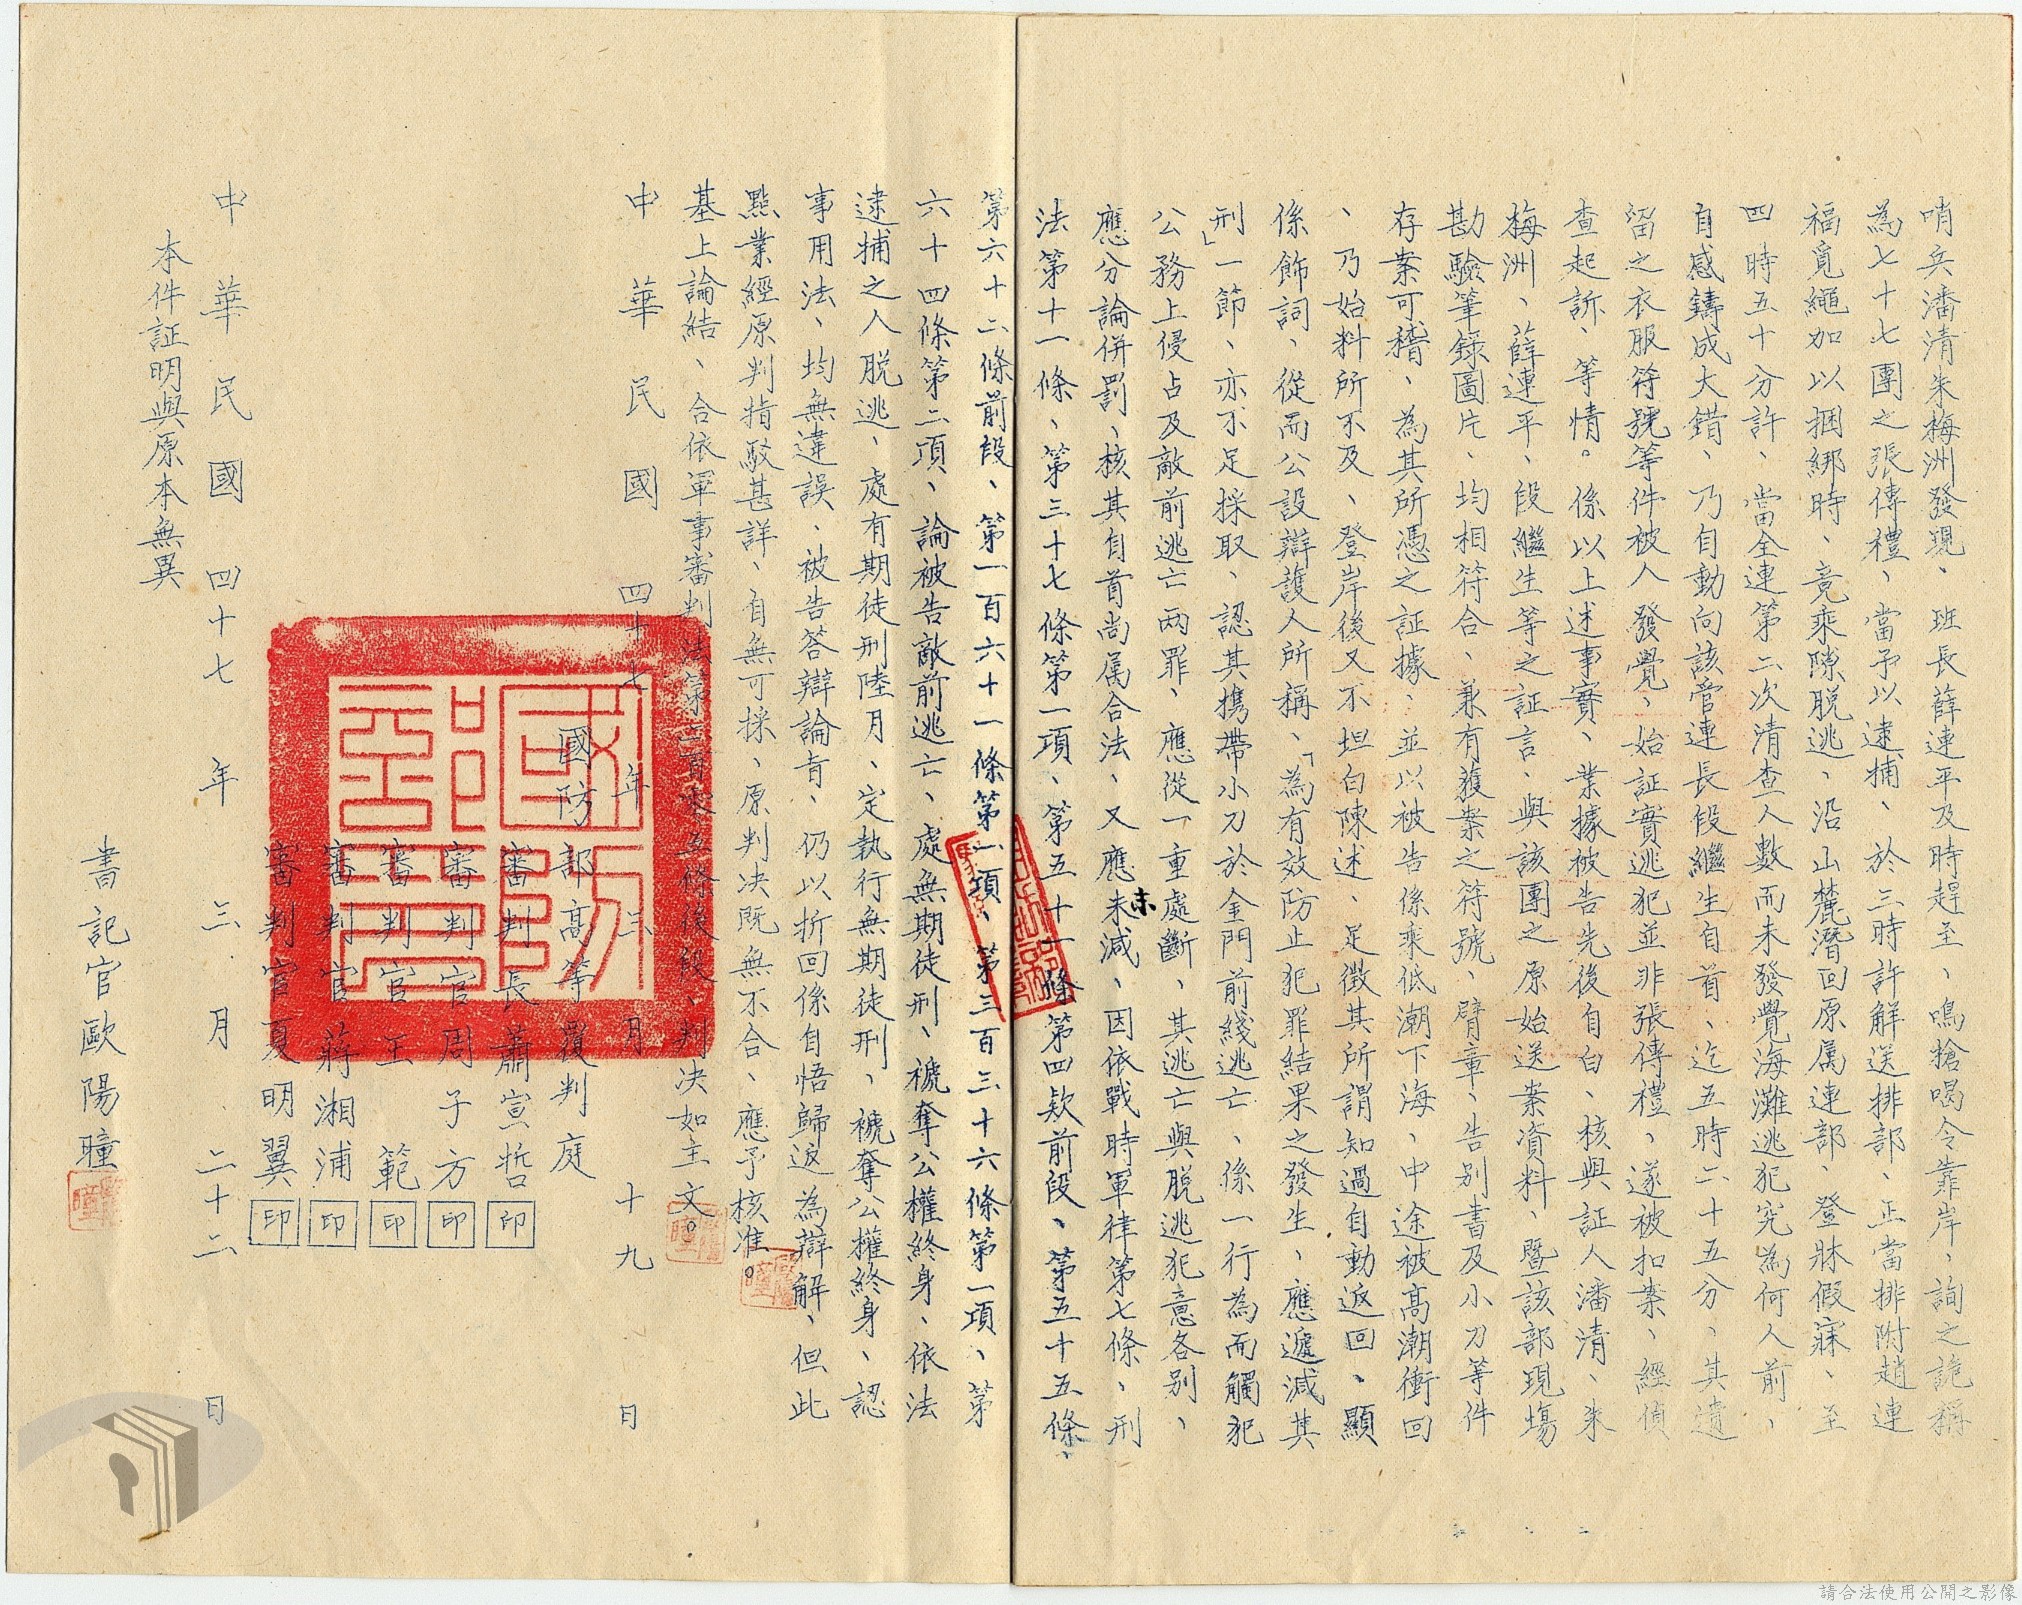 哨兵潘清朱梅洲發現、班長薛連平及時趕至、鳴搶喝令靠岸、詢之詭稱
為七十七團之張傳禮、當予以逮捕、於三時許解送排部、正當排附趙連
福覓繩加以捆綁時、竟乘隙脫逃、沿山麓潛回原属連部、登牀假寐、至
四時五十分許、當全連第二次清查人數而未發覺海灘逃犯究為何人前、
自感鑄成大錯、乃自動向該管連長段繼生自首、迄五時二十五分、其遺
留之衣服符號等件被人發覺、始証實逃犯並非張傳禮、遂被扣案、經偵
查起訴、等情。係以上述事實、業據被告先後自白、核與証人潘清、朱
梅洲、薛連平、段繼生等之証言、與該團之原始送案資料、暨該部現場
勘驗筆錄圖片、均相符合、兼有獲案之符號、臂章、告别書及小刀等件
存案可稽、為其所憑之証據、並以被告係乘低潮下海、中途被高潮衝回
、乃始料所不及、登岸後又不坦白陳述、足徵其所謂知過自動返回、顯
係飾詞、從而公設辯護人所稱、「為有效防止犯罪結果之發生、應遞減其
刑」一節、亦不足採取、認其携帶小刀於金門前綫逃亡、係一行為而觸犯
公務上侵占及敵前逃亡兩罪、應從一重處斷、其逃亡與脫逃犯意各别、
應分論併罰、核其自首尚属合法、又應未減、因依戰時軍律第七條、刑
法第十一條、第三十七條第一項、第五十一條第四款前段、第五十五條、
第六十二條前段、第一百六十一條第一項、第三百三十六條第一項、第
六十四條第二項、論被告敵前逃亡、處無期徒刑、褫奪公權終身、依法
逮捕之人脫逃、處有期徒刑陸月、定執行無期徒刑、褫奪公權終身、認
事用法、均無違誤、被告答辯論旨、仍以折回係自悟歸返為辯解、但此
點業經原判指駁甚詳、自無可採、原判決既無不合、應予核准。
基上論結、合依軍事審判法第二百零五條後段、判決如主文。
中華民國四十七年三月十九日
國防部高等覆判庭
審判長蕭宣哲 印
審判官周子方 印
審判官王範 印
審判官蔣湘浦 印
審判官夏明翼 印
中華民國四十七年三月二十二日
本件証明與原本無異
書記官歐陽瞳
國防部印
請合法使用公開之影像